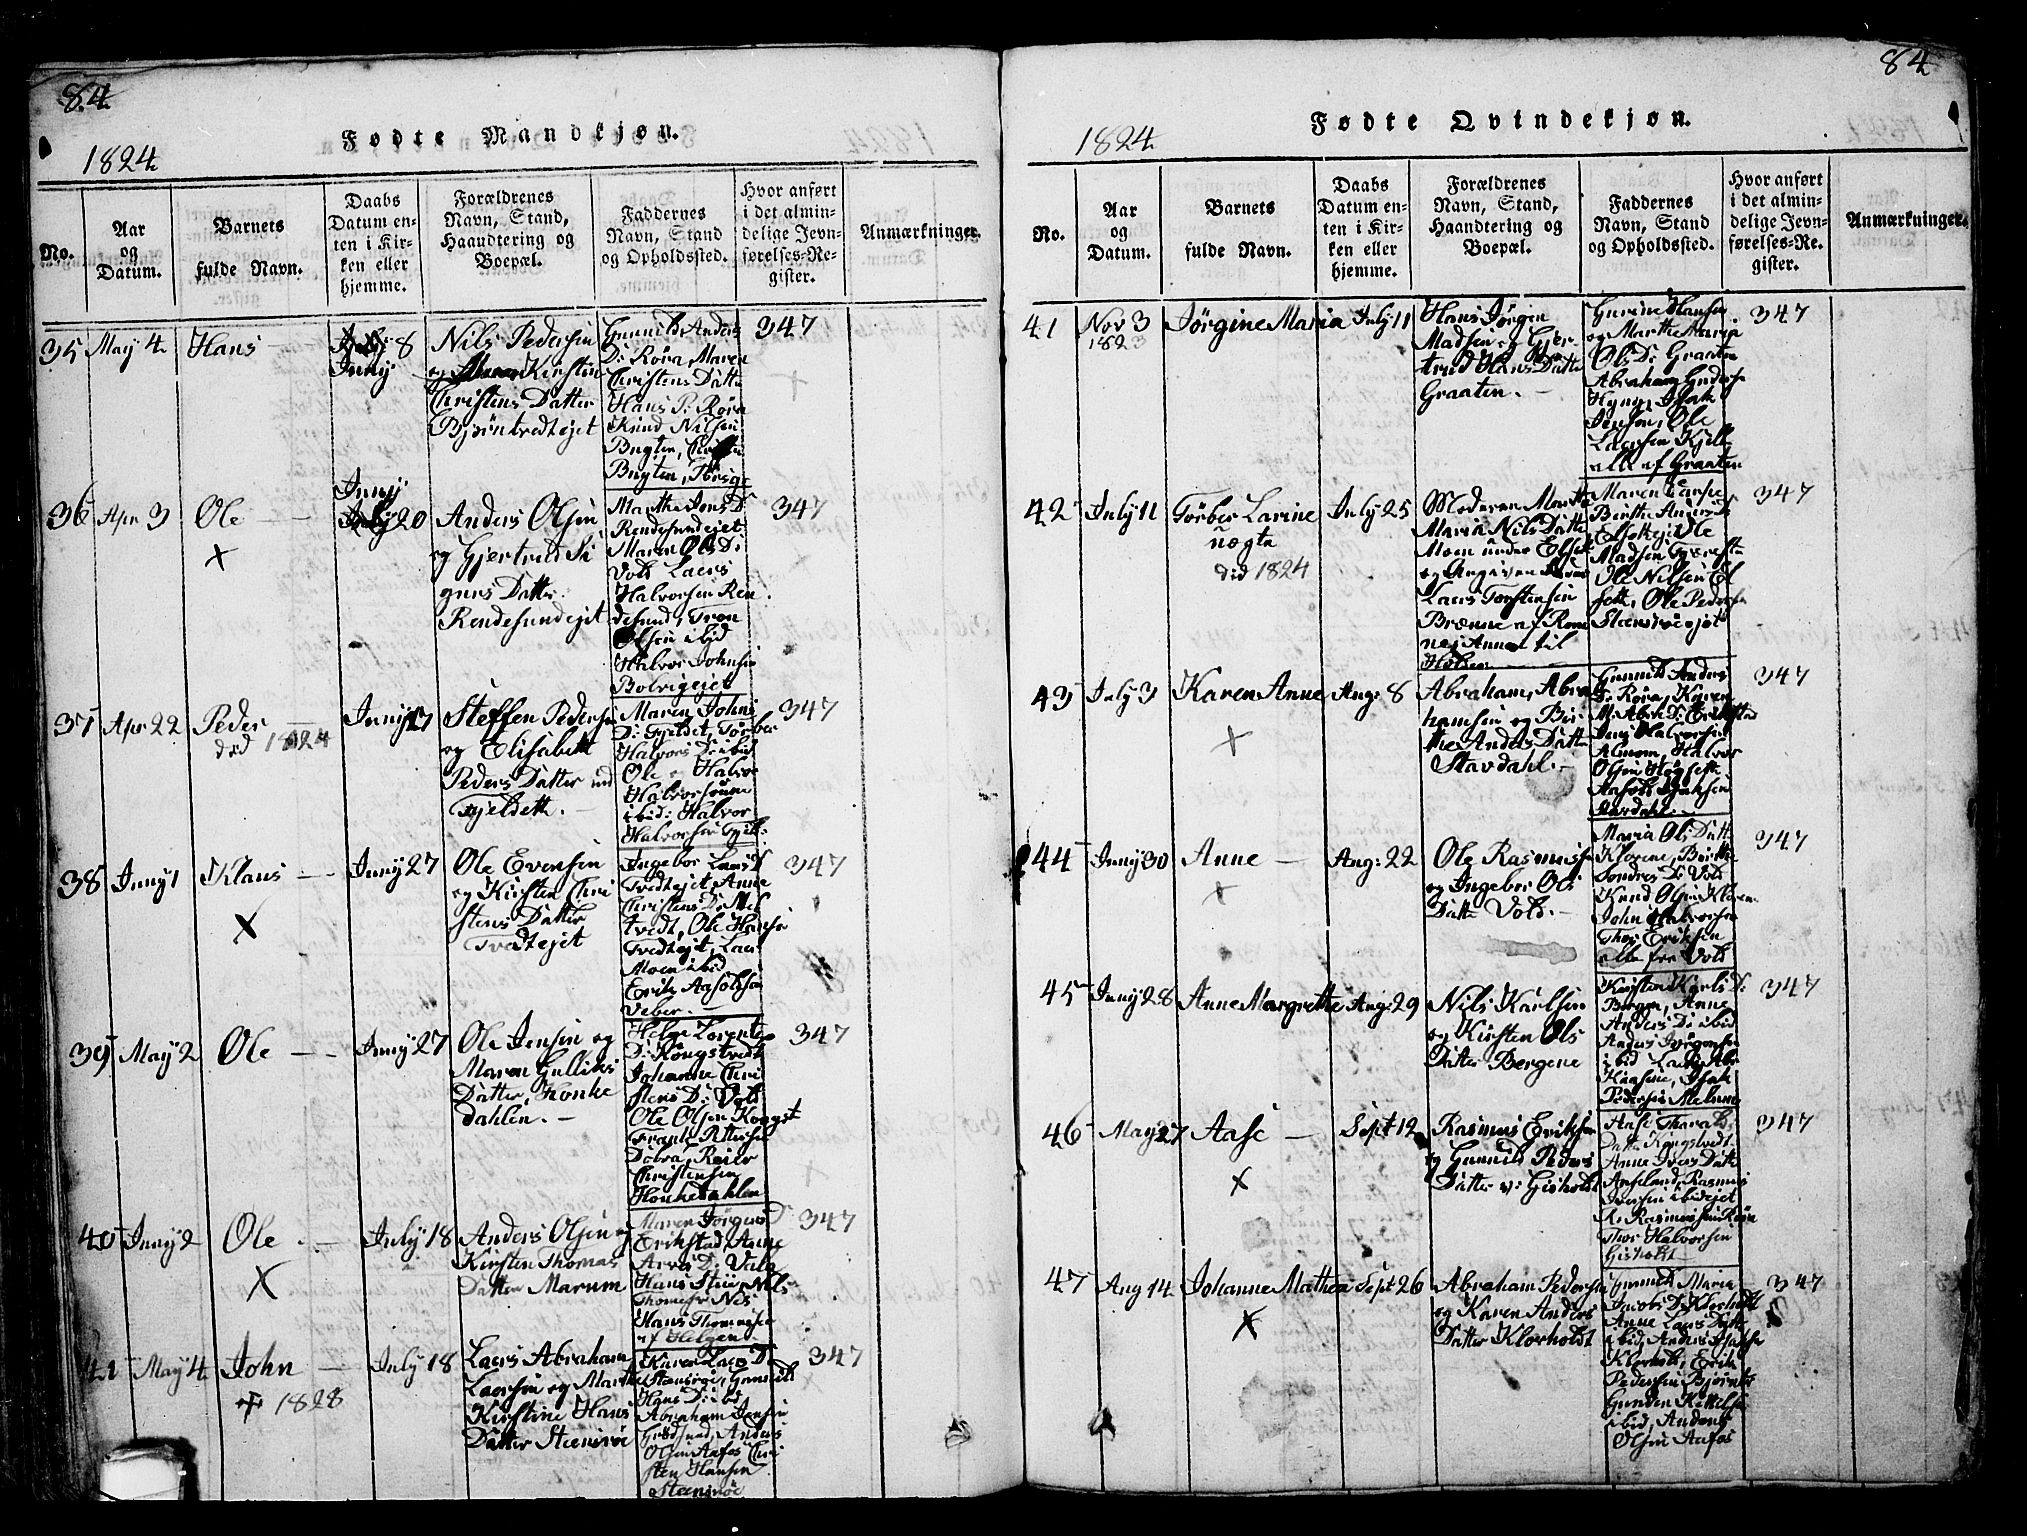 84
1824
Fødte Mandkjøn.
No.
Aar
og
Datum.
Barnets
fulde Navn.
Daabs
Datum en-
ten i Kir-
ken eller
hjemme.
Forældrenes
Navn, Stand,
Haandtering og
Boepæl.
Faddernes
Navn, Stand
og Opholdssted.
Hvor anført
i det almin-
delige Jevn-
førelses-Re-
gister.
Anmærkninger.
35 May 4 Hans
July 8
Juny
Nils Pedersen
og Kirstin
Christens Datter
Bjørntvedtejet
Gunnild Anders
D: Røra Maren
Christens Datte
Hans P: Røra
Knud Nilsen
Bugten,
Bugten,
347
36 Apr 3 Ole
Juny
July 20
Anders Olsen
og Gjertrud Si
gurs Datter
Rendesundejet
Marthe Jens D
Rendesundejet
Maren Ols D:
Vold Laers
Halvorsen Ren
desund, Tron
Olsen ibid
Halvor Johnsen
Bolvigejet
347
37 Apr 22 Peder
død 1824
Juny 17
Steffen Pedersen
og Elisabett
Peders Datter und
Gjeldett.
Maren Johns
D: Gjeldet, Torber
Halvors D: ibid
Ole Halvor
Halvorsønne
ibid: Halvor
Halvorsen
347
38 Juny 1 Klaus
Juny 27
Ole Evensen
og Kirsten Chri
stens Datter
Tvedtejet
Ingebor Laers D
Tvedtejet, Anne
Christens D: Mel
tvedt, Ole Hansen
Tvedtejet, Laers
Moen ibid
Erik Aasoldsen
Veber.
347
39 May 2 Ole
Juny 27
Ole Jensen og
Maren Gulliks
Datter, Honke
dahlen.
Helge Lorents
D: Kongstvedt
Johanne Chri
stens D: Vold
Ole Olsen Kongst
Frank Pettersen
Dobra, Reier
Christensen
Honkedahlen
347
40 Juny 2 Ole
July 18
Anders Olsen og
Kirsten Thomas
Datter Marum
Maren Jørgens D
Erikstad, Anne
Arvs D: Vala
Hans Stii, Nils
Hans Thommesen
af Helgen
347
41 May 4 John
1828
July 18
Laers Abraham
Laersen og Marthe
Kirstine Hans
Datter Steensrøe
Karen Laers D
Steensrøe, Gunnild
Hans D: ibid
Abraham Jensen
Grødsund, Anders
Olsen Aafos Chri
sten Hansen
Steensrøe
347
84
1824
Fødte Qvindekjøn.
No.
Aar
og
Datum.
Barnets
fulde Navn.
Daabs
Datum en-
ten i Kir-
ken eller
hjemme.
Forældrenes
Navn, Stand,
Haandtering og
Boepæl.
Faddernes
Navn, Stand
og Opholdssted.
Hvor anført
i det almin-
delige Jevn-
førelses-Re-
gister.
Anmærkninger.
41 Nov 3
1823
Jørgine Maria July 11
Hans Jørgen
Madsen og Gjer
trud Hans Datte
Graaten.
Gurine Hansen
og Marthe Maria
Ols D: Graaten
Abraham Anderse
Hyng, Isak
Jensen, Ole
Laersen Kjell
alle af Graaten
347
42 July 11 Torber Larine
uægte
død 1824
July 25
Moderen Marthe
Maria Nils Datte
Moen under Elset
og Angiven
Laers Torstensen
Brænne af Rom
nes Annex til
Holden
Maren Larse
Birthe Anders D
Elsetejet Ole
Madsen
Ole Nilsen El
sett, Ole Pederse
Steensrøeejet
347
43 July 3 Karen Anne Aug: 8
Abraham, Abra
hamsen og Bir
the Anders Datte
Stavdahl.
Gunnild Anders
D: Røra, Karen
M: Abrh D: Erikstad
Jens Halvorsen
Almom, Halvor
Olsen Høgset
Aasold Isaksen
Stavdahl.
347
44 Juny 30 Anne
Aug: 22
Ole Rasmuss
og Ingeber Ols
Datte Vold.
Maria Ols Datte
Klovene, Birthe
Sondres D: Vold
Knud Olsen Kloven
John Halvorsen
Thor Eriksen
alle fra Vold
347
45 Juny 28 Anne Margrethe Aug: 29
Nils Karlsen
og Kirsten Ols
Datter Bergene
Kirsten Karls D:
Bergen, Anne
Anders D: ibid
Anders Jørgensen
ibid Laers Abr
Haasene, Isak
Pedersen Melum
347
46 May 27 Aase
Sept 12
Rasmus Eriksen
og Gunnild Peders
Datter v: Gisholt
Aase Tharals
Datte Kongstvedt
Anne Ivers Datte
Aaseland, Rasmus
Iversen ibidejet
R. Rasmussen Røin
Thor Halvorsen
Gisholt
347
47 Aug 14 Johanne Mathea Sept 26
Abraham Pedersen
og Karen Anders
Datter Klovholdt
Gunnild Maria
Jacobs D: Klovholdt
Anne Laers Datte
ibid, Anders Isakse
Klovholt, Erik
Pedersen Bjørnte
Gunder Kittelsen
ibid, Anders
Olsen Aafos
347